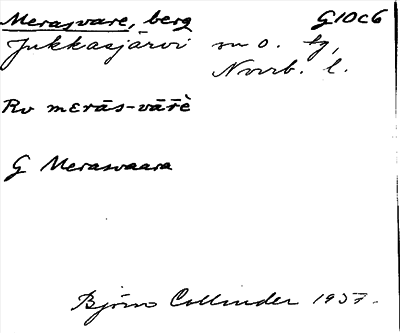 Merasvare, berg G10c6
Jukkasjärvi sn o. tg,
Norrb. l.
Rv merās-vāřè
G Merasvaara
Björn Collinder 1937.